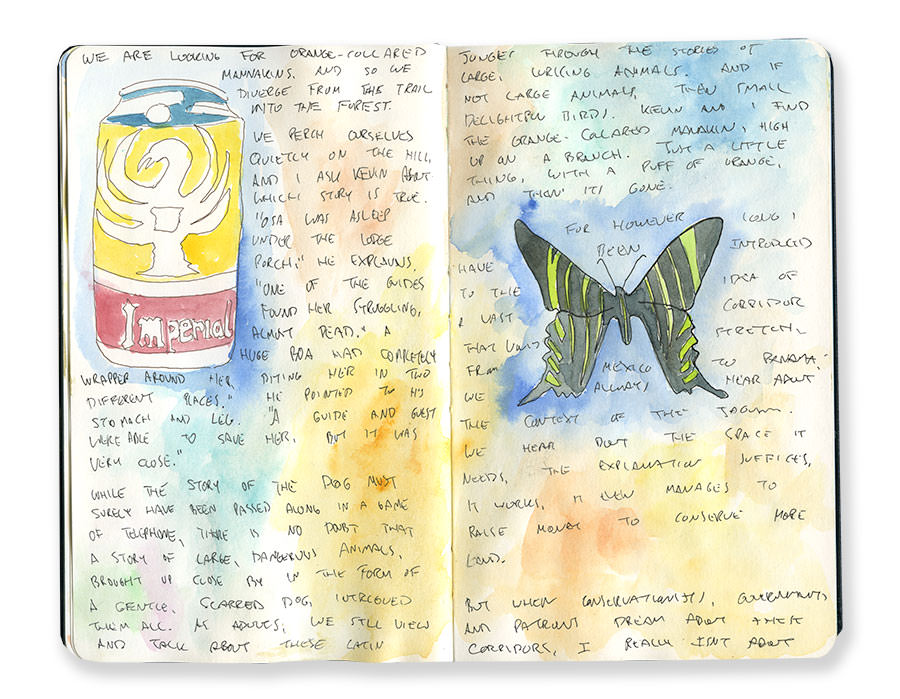 WE ARE LOOKING FOR ORANGE-COLLARED
MANNAKINS. AND SO WE
DIVERGE FROM THIS TRAIL
INTO THE FOREST.
WE PERCH OURSELVES
QUIETLY ON THE HILL,
AND I ASK KEVIN ABOUT
WHICH STORY IS TRUE.
"OSA WAS ASLEEP
UNDER THE LODGE
PORCH," HE EXPLAINS.
"ONE OF THE GUIDES
FOUND HER STRUGGLING,
ALMOST DEAD." A
HUGE BOA HAD COMPLETELY
WRAPPER AROUND HER, BITING HER IN TWO
DIFFERENT PLACES." HE POINTED TO HIS
STOMACH AND LEG. "A GUIDE AND GUEST
WERE ABLE TO SAVE HER, BUT IT WAS
VERY CLOSE."
WHILE THE STORY OF THE DOG MUST
SURELY HAVE BEEN PASSED ALONG IN A GAME
OF TELEPHONE, THERE IS NO DOUBT THAT
A STORY OF LARGE, DANGEROUS ANIMALS,
BROUGHT UP CLOSE BY IN THE FORM OF
A GENTLE, SCARRED DOG, INTRIGUED
THEM ALL. AS ADULTS, WE STILL VIEW
AND TALK ABOUT THESE LATIN
Imperial
JUNGLES THROUGH THE STORIES OF
LARGE, LURKING ANIMALS. AND IF
NOT LARGE ANIMALS, THEN SMALL
DELIGHTFUL BIRDS. KEVIN AND I FIND
THE ORANGE-COLLARED MANAKIN, HIGH
UP ON A BRANCH. JUST A LITTLE
THING, WITH A PUFF OF ORANGE,
AND THEN ITS GONE.
FOR HOWEVER LONG I
HAVE BEEN INTRODUCED
TO THE IDEA OF
A VAST CORRIDOR
THAT STRETCHES
FROM MEXICO TO PANAMA,
WE ALWAYS HEAR ABOUT
THE CONTEXT OF THE JAGUAR.
WE HEAR BOUT THE SPACE IT
NEEDS, THE EXPLANATION SUFFICES,
IT WORKS, IT EVEN MANAGES TO
RAISE MONEY TO CONSERVE MORE
LAND.
BUT WHEN CONSERVATIONISTS, GOVERNMENTS
AND PATRONS DREAM ABOUT THEIR
CORRIDORS, I REALLY ISNT ABOUT